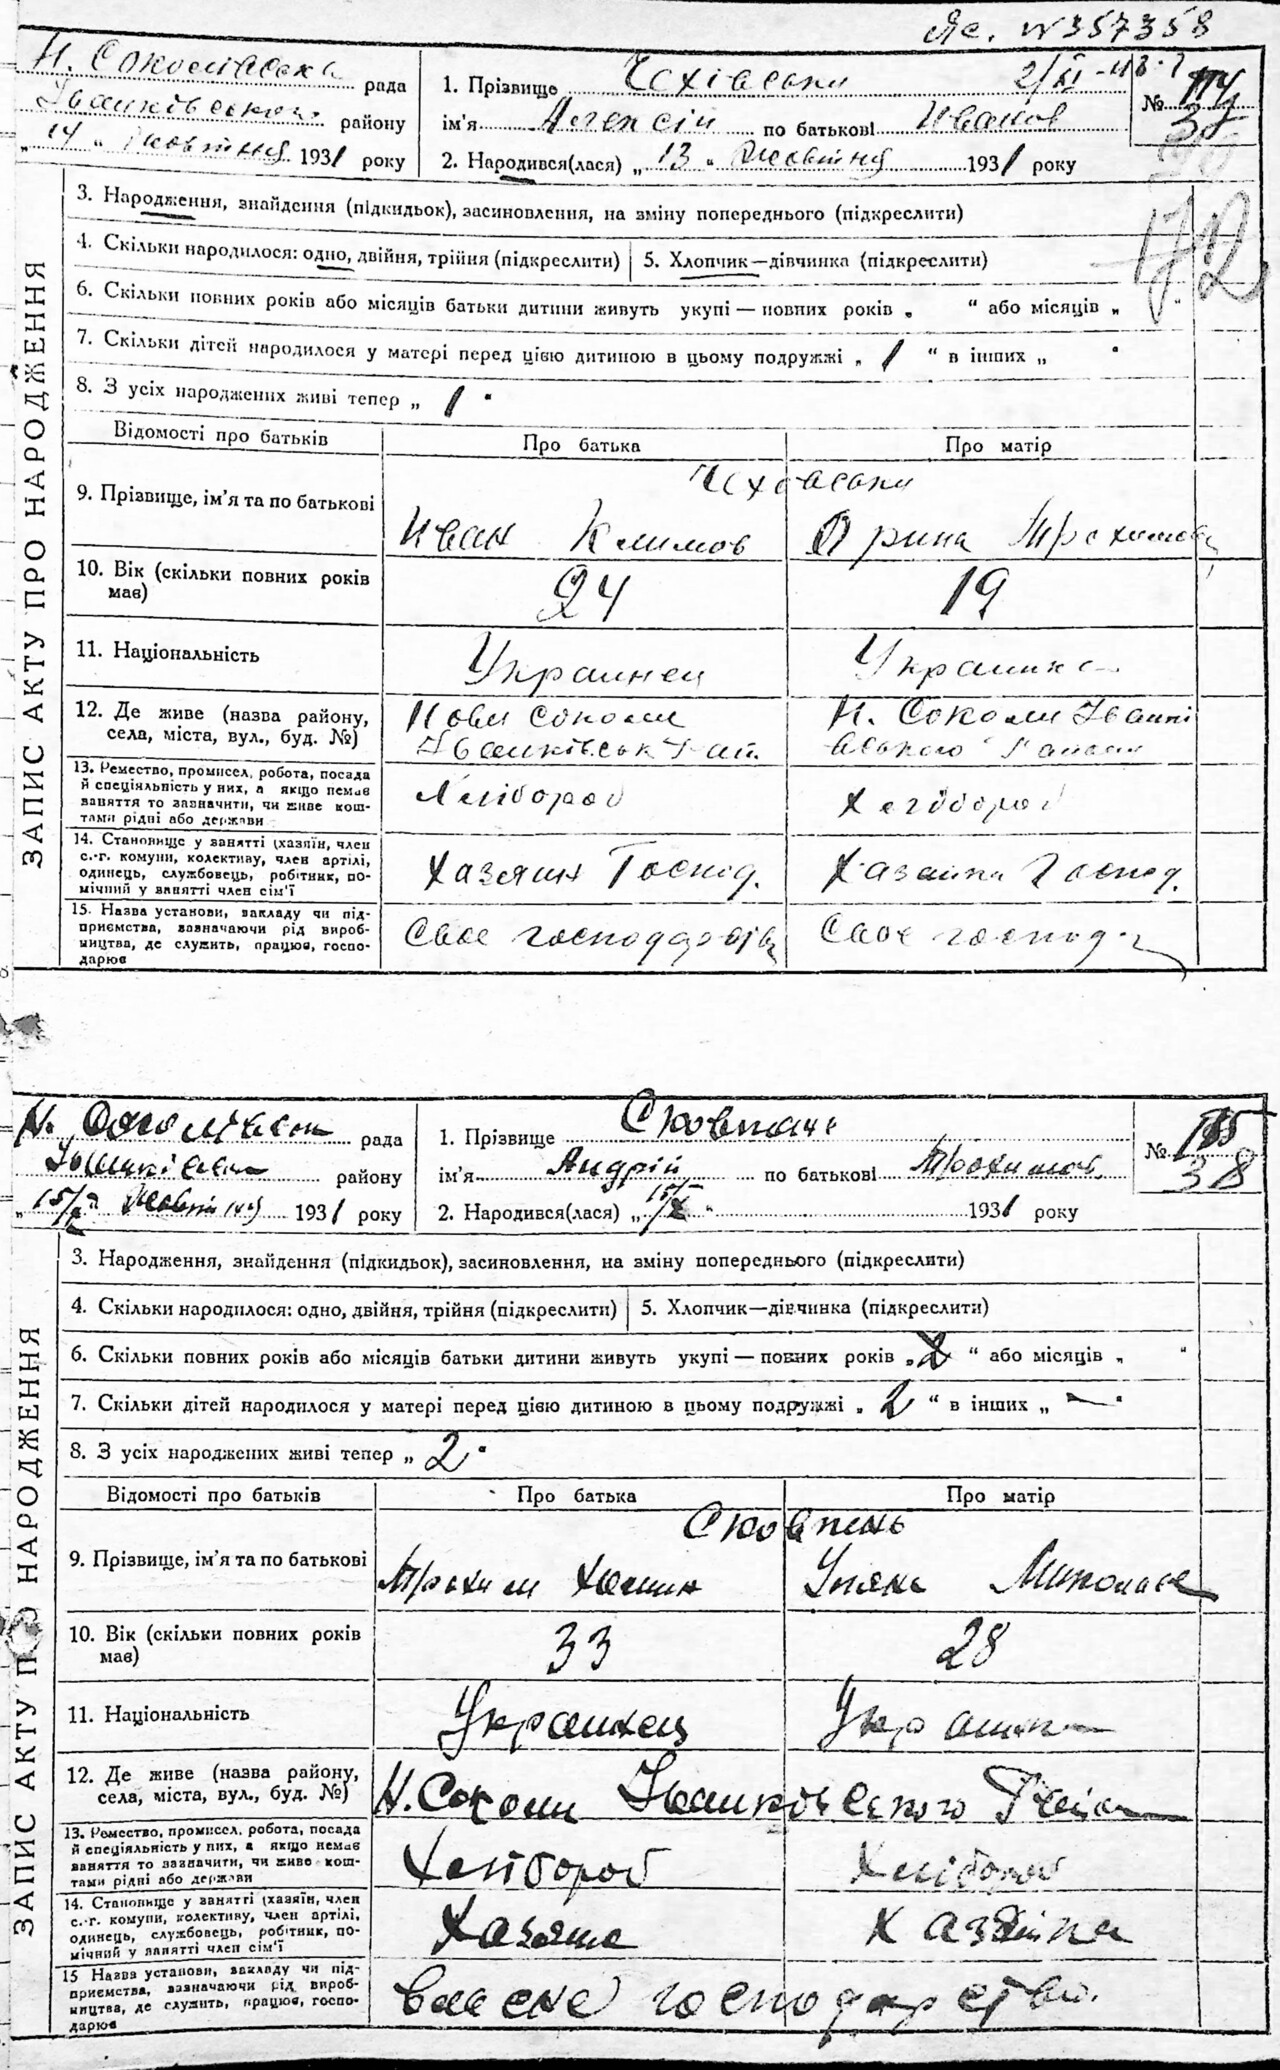 Яс. N 357358
Н. Соколівська рада
Іванківського району
„ 14 “ Жовтня 1931 року
1. Прізвище Чехівськи 2/XI-48 г
ім'я Алексій по батькові Иванов
2. Народився(лася) „ 13 “ Жовтня 1931 року
№ 114
37
172
ЗАПИС АКТУ ПРО НАРОДЖЕННЯ
3. Народження, знайдення (підкидьок), засиновлення, на зміну попереднього (підкреслити)
4. Скільки народилося: одно, двійня, трійня (підкреслити) 5. Хлопчик—дівчинка (підкреслити)
6. Скільки повних років або місяців батьки дитини живуть укупі — повних років „ “ або місяців „ “
7. Скільки дітей народилося у матері перед цією дитиною в цьому подружжі „ 1 “ в інших „ “
8. З усіх народжених живі тепер „ 1 “
Відомості про батьків Про батька Про матір
9. Прізвище, ім'я та по батькові
Чехівськи
Иван Климов Орина Трохимова
10. Вік (скільки повних років мав) 24 19
11. Національність Украинец Украинка
12. Де живе (назва району, села, міста, вул., буд. №)
Нови Соколи Іванківськ Рай.
Н. Соколи Іванківського Района
13. Ремество, промисел, робота, посада
й спеціяльність у них, а якщо немає
заняття то зазначити, чи живе кош-
тами рідні або держави
Хлібороб Хлібороб
14. Становище у занятті (хазяїн, член
с.-г. комуни, колективу, член артілі,
одинець, службовець, робітник, по-
мічний у занятті член сім'ї
Хазяин Господ. Хазяйка Господ.
15. Назва установи, закладу чи під-
приємства, зазначаючи рід вироб-
ництва, де служить, працює, госпо-
дарює
Своє господарство Своє господ.
Н. Соколівськ рада
Іванківськ району
„ 15/X “ Жовтня 1931 року
1. Прізвище Сковпень
ім'я Андрій по батькові Трохимов
2. Народився(лася) „ 15/X “ 1931 року
№ 115
38
ЗАПИС АКТУ ПРО НАРОДЖЕННЯ
3. Народження, знайдення (підкидьок), засиновлення, на зміну попереднього (підкреслити)
4. Скільки народилося: одно, двійня, трійня (підкреслити) 5. Хлопчик—дівчинка (підкреслити)
6. Скільки повних років або місяців батьки дитини живуть укупі — повних років „ “ або місяців „ “
7. Скільки дітей народилося у матері перед цією дитиною в цьому подружжі „ 2 “ в інших „ — “
8. З усіх народжених живі тепер „ 2 “
Відомості про батьків Про батька Про матір
9. Прізвище, ім'я та по батькові
Сковпень
Трохим Уляна Миколаев
10. Вік (скільки повних років мав) 33 28
11. Національність Украинец Украинка
12. Де живе (назва району, села, міста, вул., буд. №)
Н. Соколи Іванковського Район
13. Ремество, промисел, робота, посада
й спеціяльність у них, а якщо немає
заняття то зазначити, чи живе кош-
тами рідні або держави
Хлібороб Хлібороб
14. Становище у занятті (хазяїн, член
с.-г. комуни, колективу, член артілі,
одинець, службовець, робітник, по-
мічний у занятті член сім'ї
Хазяин Хазяйка
15 Назва установи, закладу чи під-
приємства, зазначаючи рід вироб-
ництва, де служить, працює, госпо-
дарює
Власне господарство.